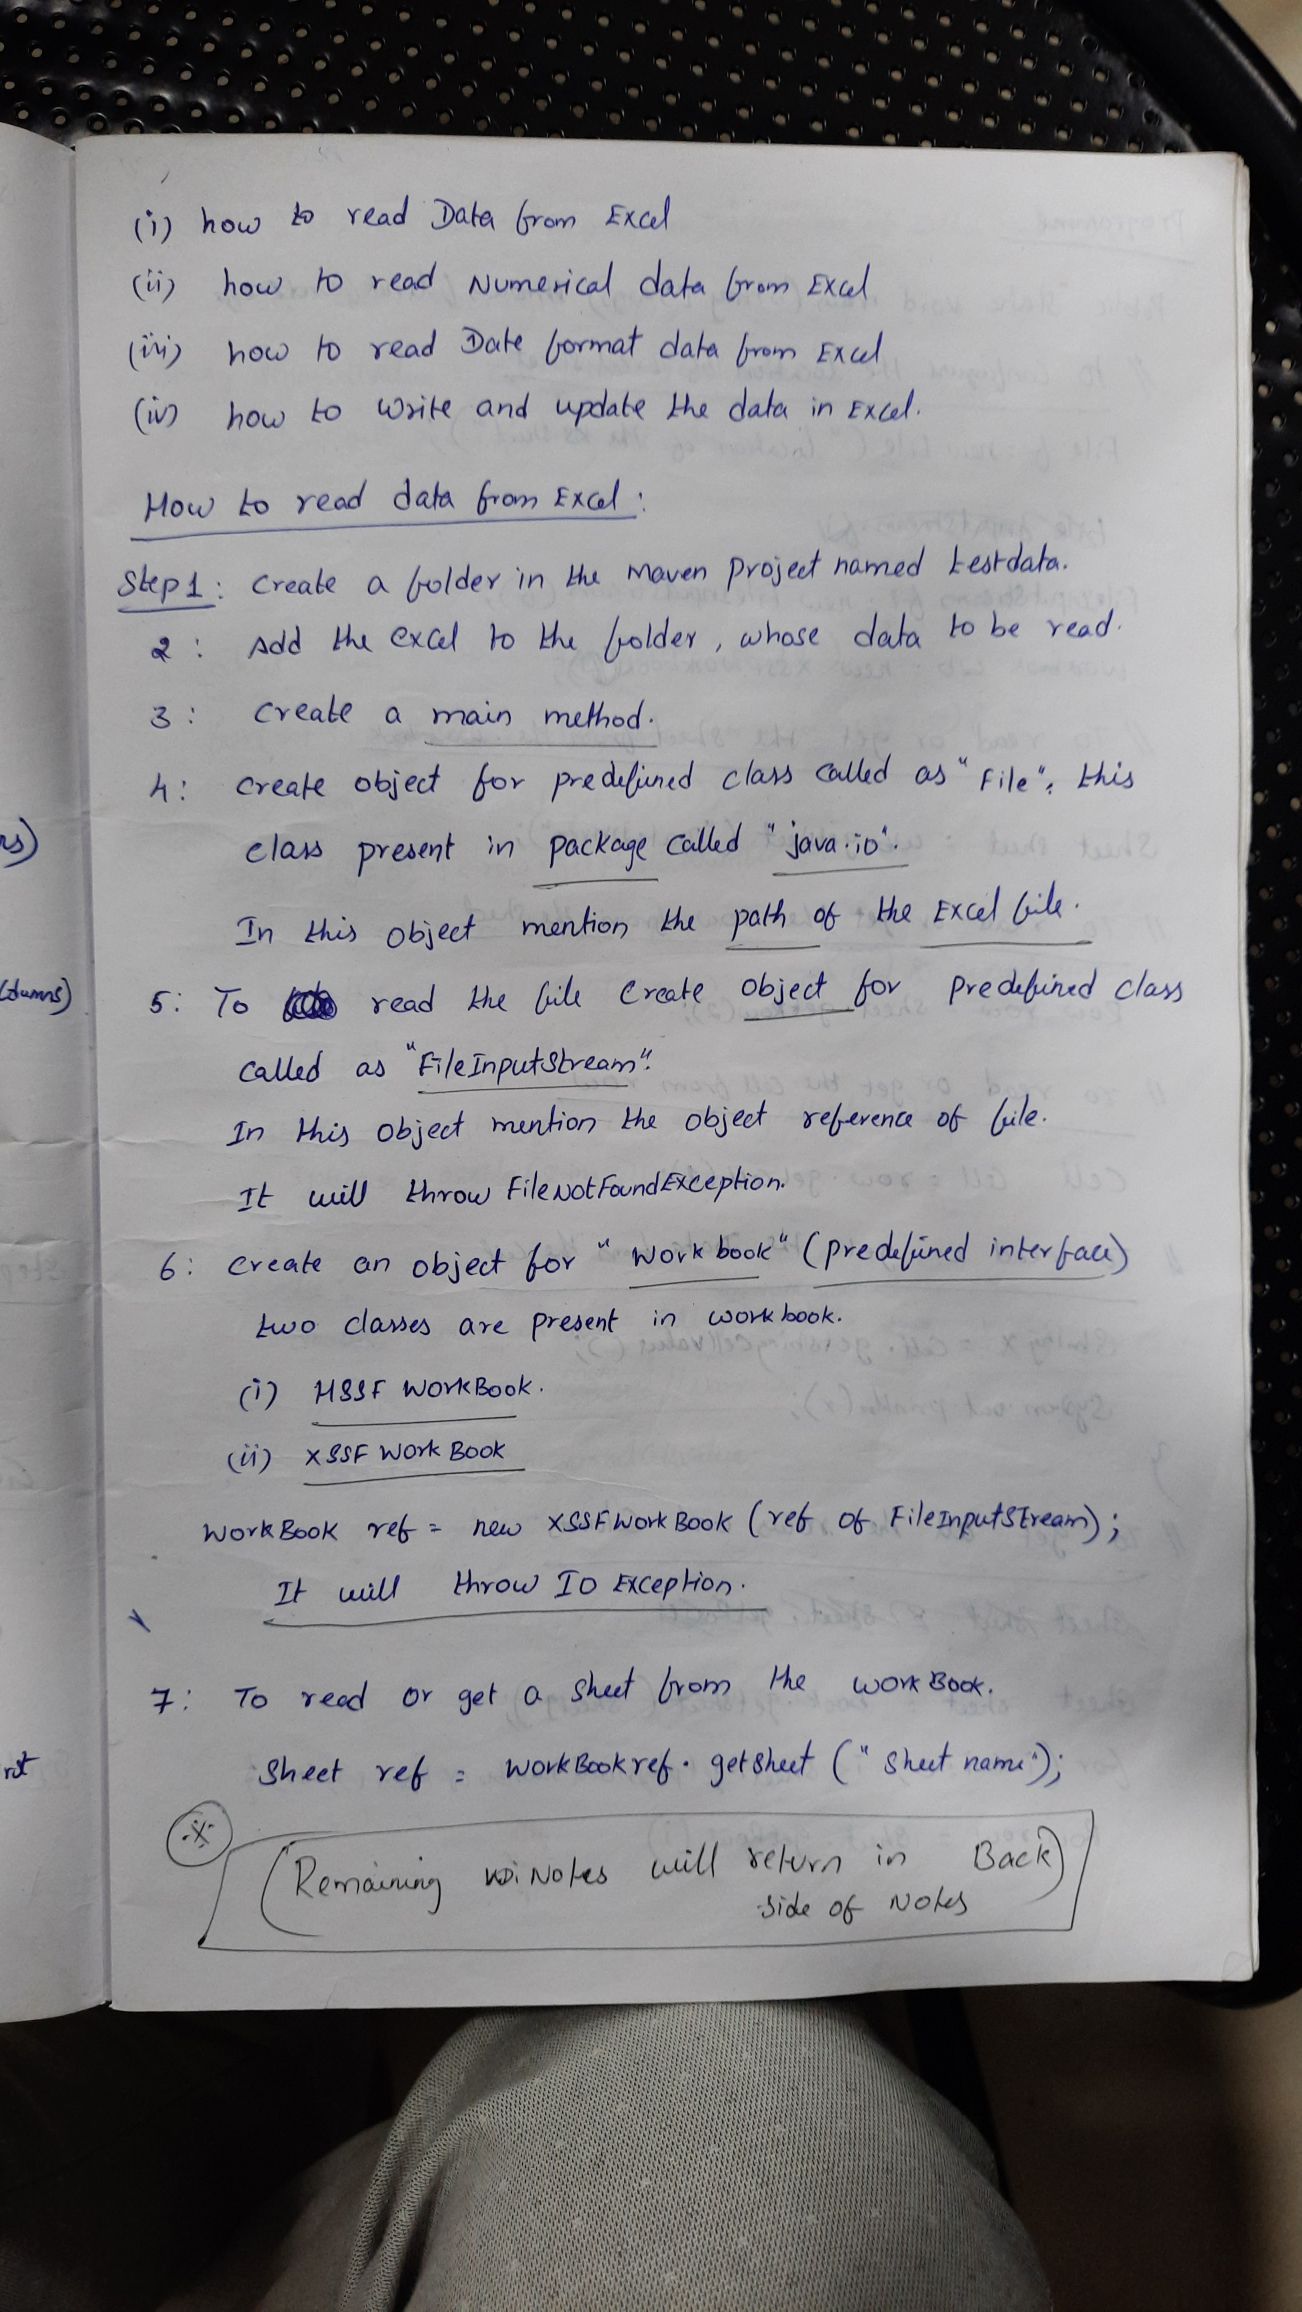 (i) how to read Data from Excel
(ii) how to read Numerical data from Excel
(iii) how to read Date format data from Excel
(iv) how to write and update the data in Excel.
How to read data from Excel:
Step 1: Create a folder in the Maven Project named testdata.
2: Add the excel to the folder, whose data to be read.
3: Create a main method.
4: Create object for predefined class called as "File", this
class present in package called "java.io".
In this object mention the path of the Excel file.
5: To read the file Create object for predefined class
called as "FileInputStream".
In this object mention the object reference of file.
It will throw FileNotFoundException.
6: Create an object for "Work book" (predefined interface)
two classes are present in workbook.
(i) HSSF WorkBook.
(ii) XSSF Work Book
WorkBook ref = new XSSFWorkBook (ref of FileInputStream);
It will throw IO Exception.
7: To read or get a sheet from the workBook.
Sheet ref = WorkBookref.getsheet ("Sheet name");
(Remaining Notes will return in Back
side of Notes)